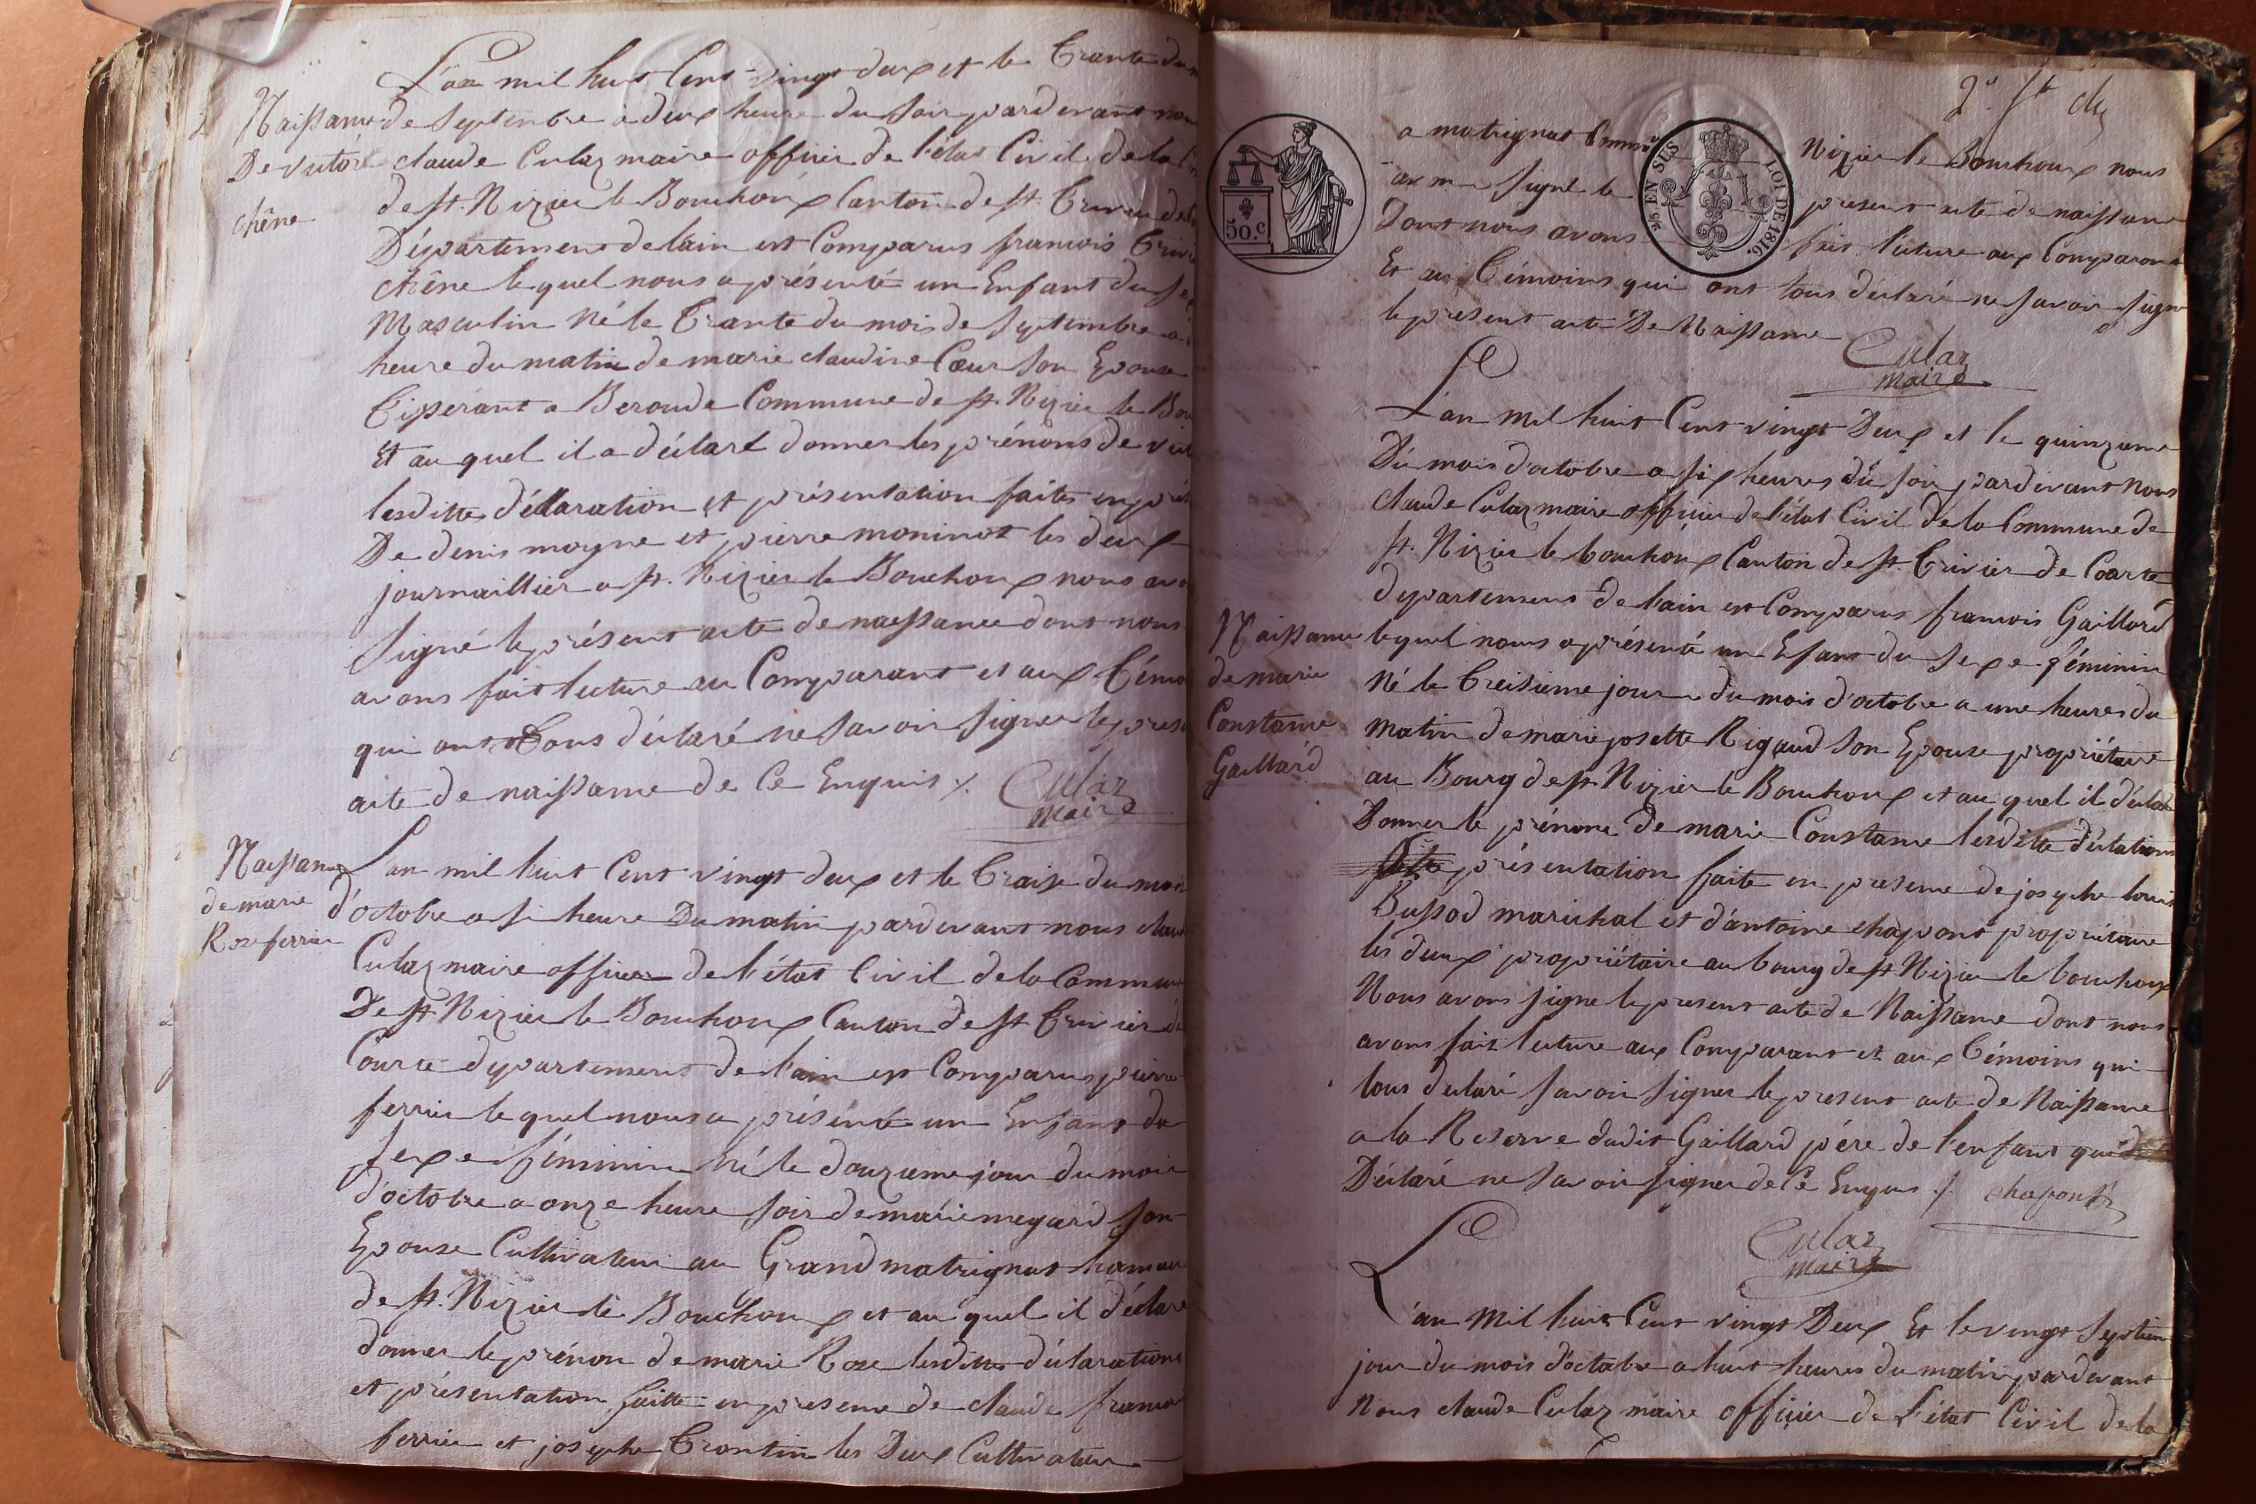 L'an mil huit Cent vingt deux et le Trante du
Naissance
De
chêne
de Septembre a deux heure du Soir pardevant
claude Culaz maire officier de l'état Civil de la
de St. Nizier le Bouchoux Canton de St. Trivier de
Département de l'ain est Comparus francois
chêne le quel nous a présenté un Enfant du
Masculin Né le Trante du mois de Septembre a
heure du matin de marie claudine Cœur son Epouse
Tisserant a Beroude Commune de St. Nizier le
Et au quel il a déclaré donner les prénoms de
lesdittes déclaration et présentation faites en
De denis moyne et pierre moninot les deux
journaillier a St. Nizier le Bouchoux nous
signé le présent acte de naissance dont nous
avons fait lecture au Comparant et aux
qui ont Tous déclaré ne savoir signer le
acte de naissance de Ce Enquis ⁒.
Culaz
maire
Naissance
de marie
Rose ferrier
L'an mil huit Cent vingt deux et le Traise du mois
d'octobre a si heure Du matin pardevant nous
Culaz maire officier de l'état Civil de la Commune
De St Nizier le Bouchoux Canton de St Trivier de
Courte département de l'ain est Comparus pierre
ferrier le quel nous a présenté un Enfant du
sexe féminin Né le douzieme jour du mois
d'octobre a onze heure soir de marie megard son
Epouse Cultivateur au Grand matrignat hameau
de St. Nizier le Bouchoux et au quel il déclare
donner le prénon de marie Rose lesdittes déclarations
et présentation faitte en presence de claude francois
ferrier et josephe Trontin les Deux Cultivateur
2e. St
50.c
EN SUS
LOI DE 1816.
a matrignat Nizier le Bouchoux nous
signé le present acte de naissance
Dont nous avons fait lecture aux Comparant
Et aux Témoins qui ont tous déclaré ne savoir signer
le present acte De Naissance
Culaz
maire
L'an Mil huit Cent vingt Deux et le quinzieme
Du mois d'octobre a six heures du soir pardevant Nous
claude Culaz maire officier de l'état Civil De la Commune de
St. Nizier le bouchoux Canton de St. Trivier de Courte
département de l'ain est Comparus francois Gaillard
Naissance
de marie
Constance
Gaillard
lequel nous a présenté un Enfant du sexe féminin
Né le Treisieme jour du mois d'octobre a une heures du
matin de marie josette Rigaud son Epouse propriétaire
au Bourg de St. Nizier le Bouchoux et au quel il déclare
Donner le prénom de marie Constance lesditte déclations
présentation faite en presence de josephe louis
Bussod marichal et d'antoine chapont propriétaire
les deux propriétaire au bourg de St Nizier le bouchoux
Nous avons signe le present acte de Naissance dont nous
avons fait lecture aux Comparant et aux Témoins qui
tous declaré savoir signer le present acte de Naissance
a la Reserve dudit Gaillard pére de l'enfant qui
Déclaré ne savoir signer de Ce Enquis ⁒. chapont
Culaz
maire
L'an Mil huit Cent vingt Deux Et le vingt Septieme
jour du mois d'octobre a huit heures du matin pardevant
Nous claude Culaz maire officier de L'état Civil de la